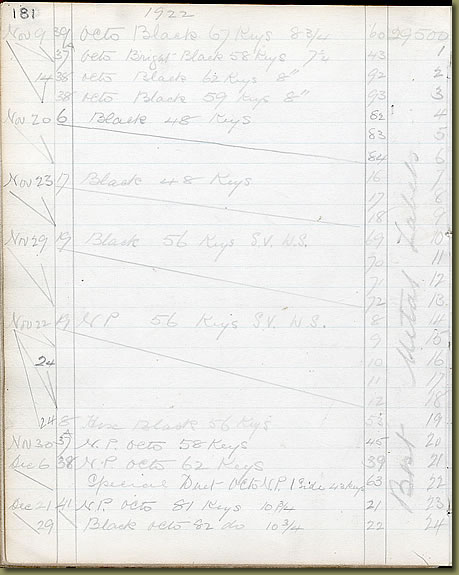 181 1922
Nov 9 39A Octo Black 67 Keys 8 3/4 60 29500
37 Octo Bright Black 58 Keys 7 1/2 43 1
14 38 Octo Black 62 Keys 8" 92 2
38 Octo Black 59 Keys 8" 93 3
Nov 20 6 Black 48 Keys 82 4
83 5
84 6
Nov 23 17 Black 48 Keys 16 7
17 8
18 9
Nov 29 19 Black 56 Keys S.V. N.S. 69 10
70 11
71 12
72 13
Nov 22 19 N.P. 56 Keys S.V. N.S. 8 14
9 15
24 10 16
11 17
12 18
24 8 Hex Black 56 Keys 53 19
Nov 30 37 N.P. Octo 58 Keys 45 20
Dec 6 38 N.P. Octo 62 Keys 39 21
Special Duet Octo N.P. 1 Side 42 Keys 63 22
Dec 21 41 N.P. Octo 81 Keys 10 3/4 21 23
29 Black Octo 82 do 10 3/4 22 24
Best Metal Labels